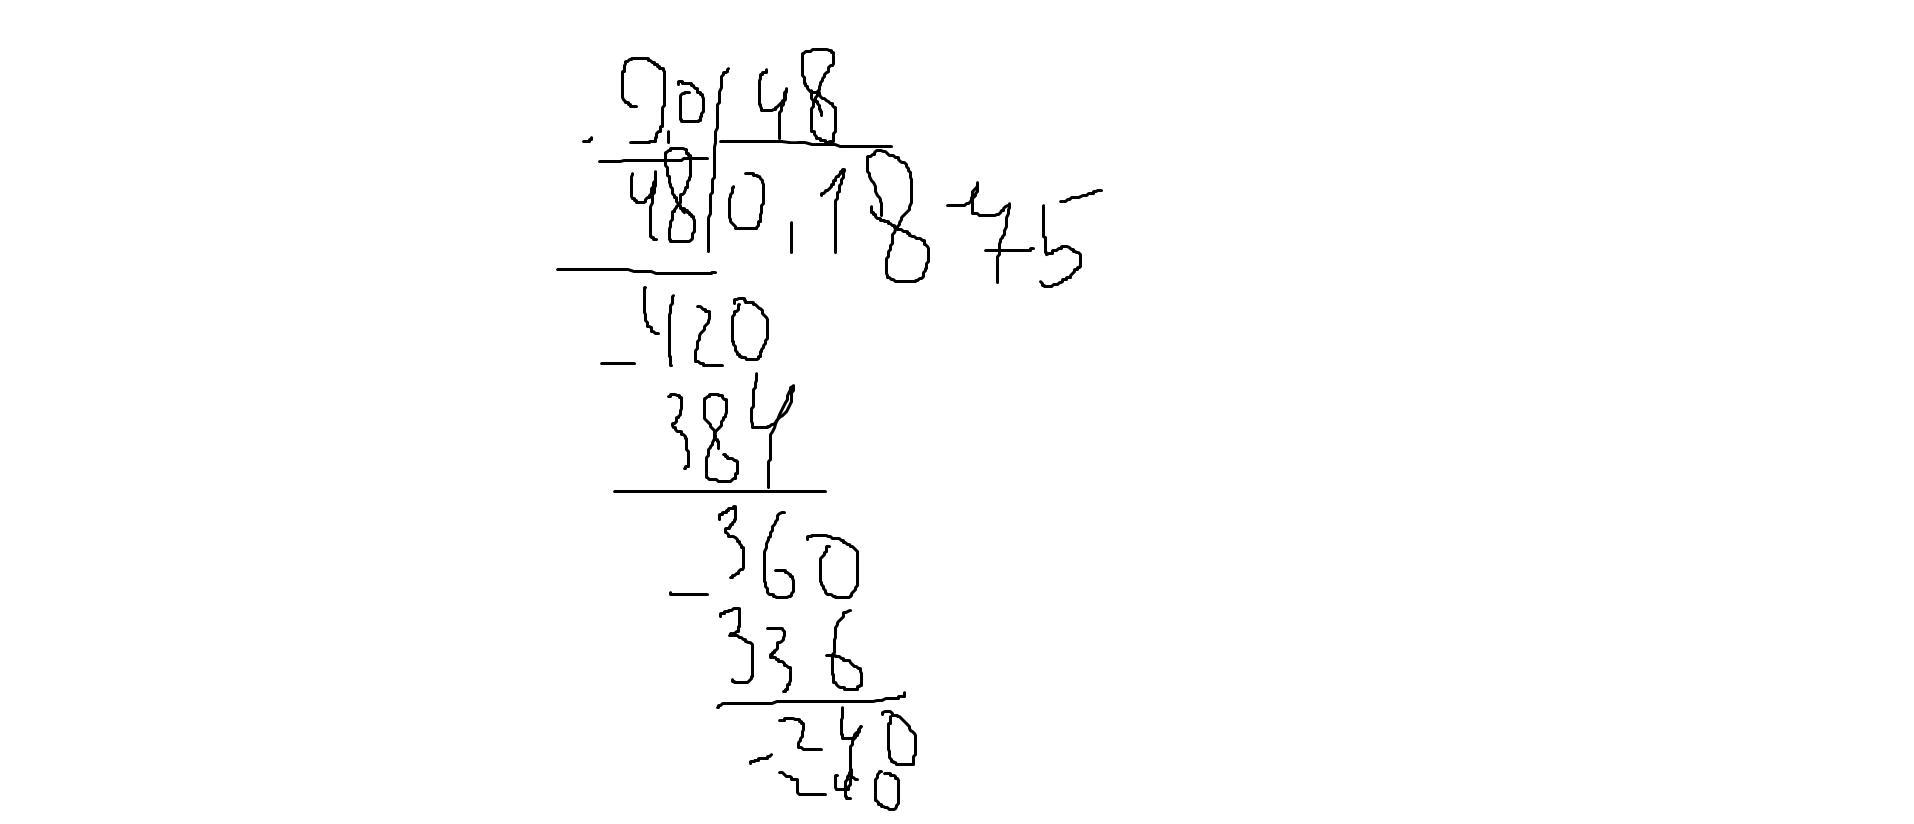 9,0 48
48 0,1875
- 420
384
- 360
336
- 240
240